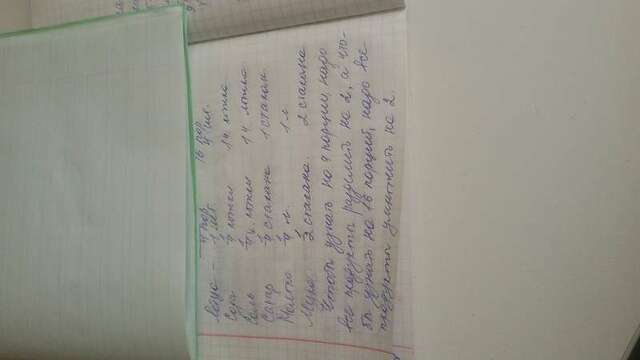 4 пор. 16 пор.
Яйцо - 1 шт 4 шт.
Сода 1/4 ложки 1 ч ложка
Соль 1/4 ч. ложки 1 ч ложка
Сахар 1/4 стакана 1 стакан
Молоко 1/4 л. 1 л
Мука 1/2 стакана. 2 стакана
Чтобы узнать на 4 порции, надо
все продукты разделить на 2, а что-
бы узнать на 16 порций, надо все
продукты умножить на 2.